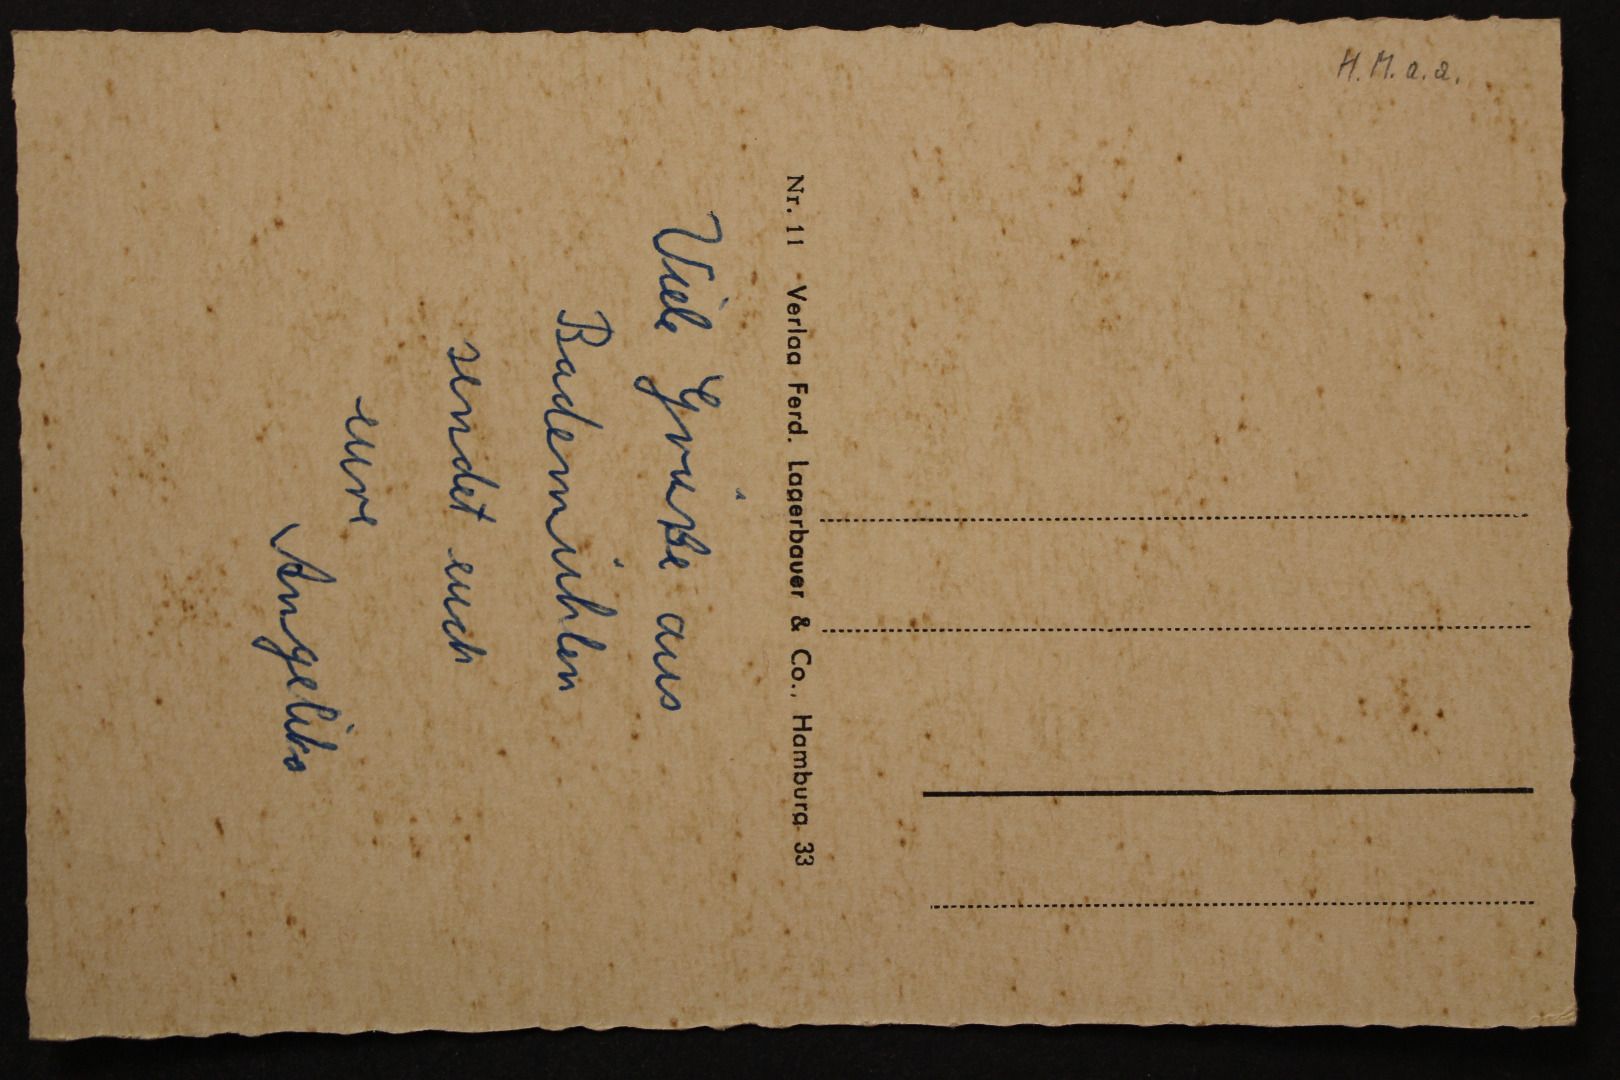 H. M. a. a.
Nr. 11 Verlag Ferd. Lagerbauer & Co., Hamburg 33
Viele Grüße aus
Bademühlen
sendet euch
eure
Angelika